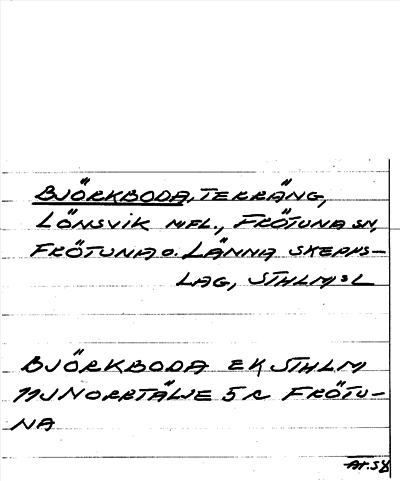 BJÖRKBODA, TERRÄNG,
LÖNSVIK MFL., FRÖTUNA SN,
FRÖTUNA O. LÄNNA SKEPPS-
LAG, STHLMS L
BJÖRKBODA EK STHLM
11J NORRTÄLJE 5 R FRÖTU-
NA